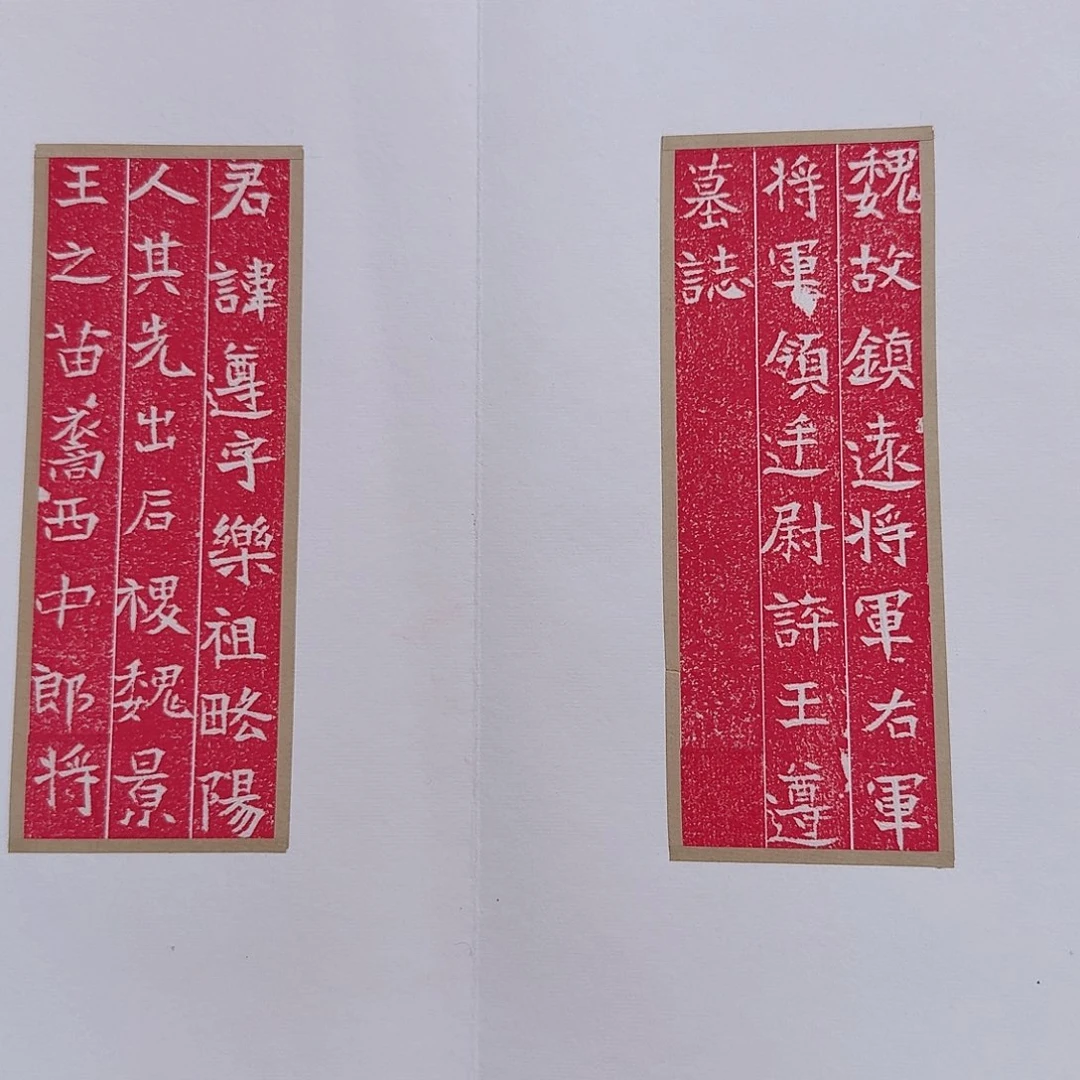 魏故鎮遠将軍右軍
将軍領廷尉評王遵
墓誌
君諱遵字樂祖略陽
人其先出后稷魏景
王之苗裔西中郎将